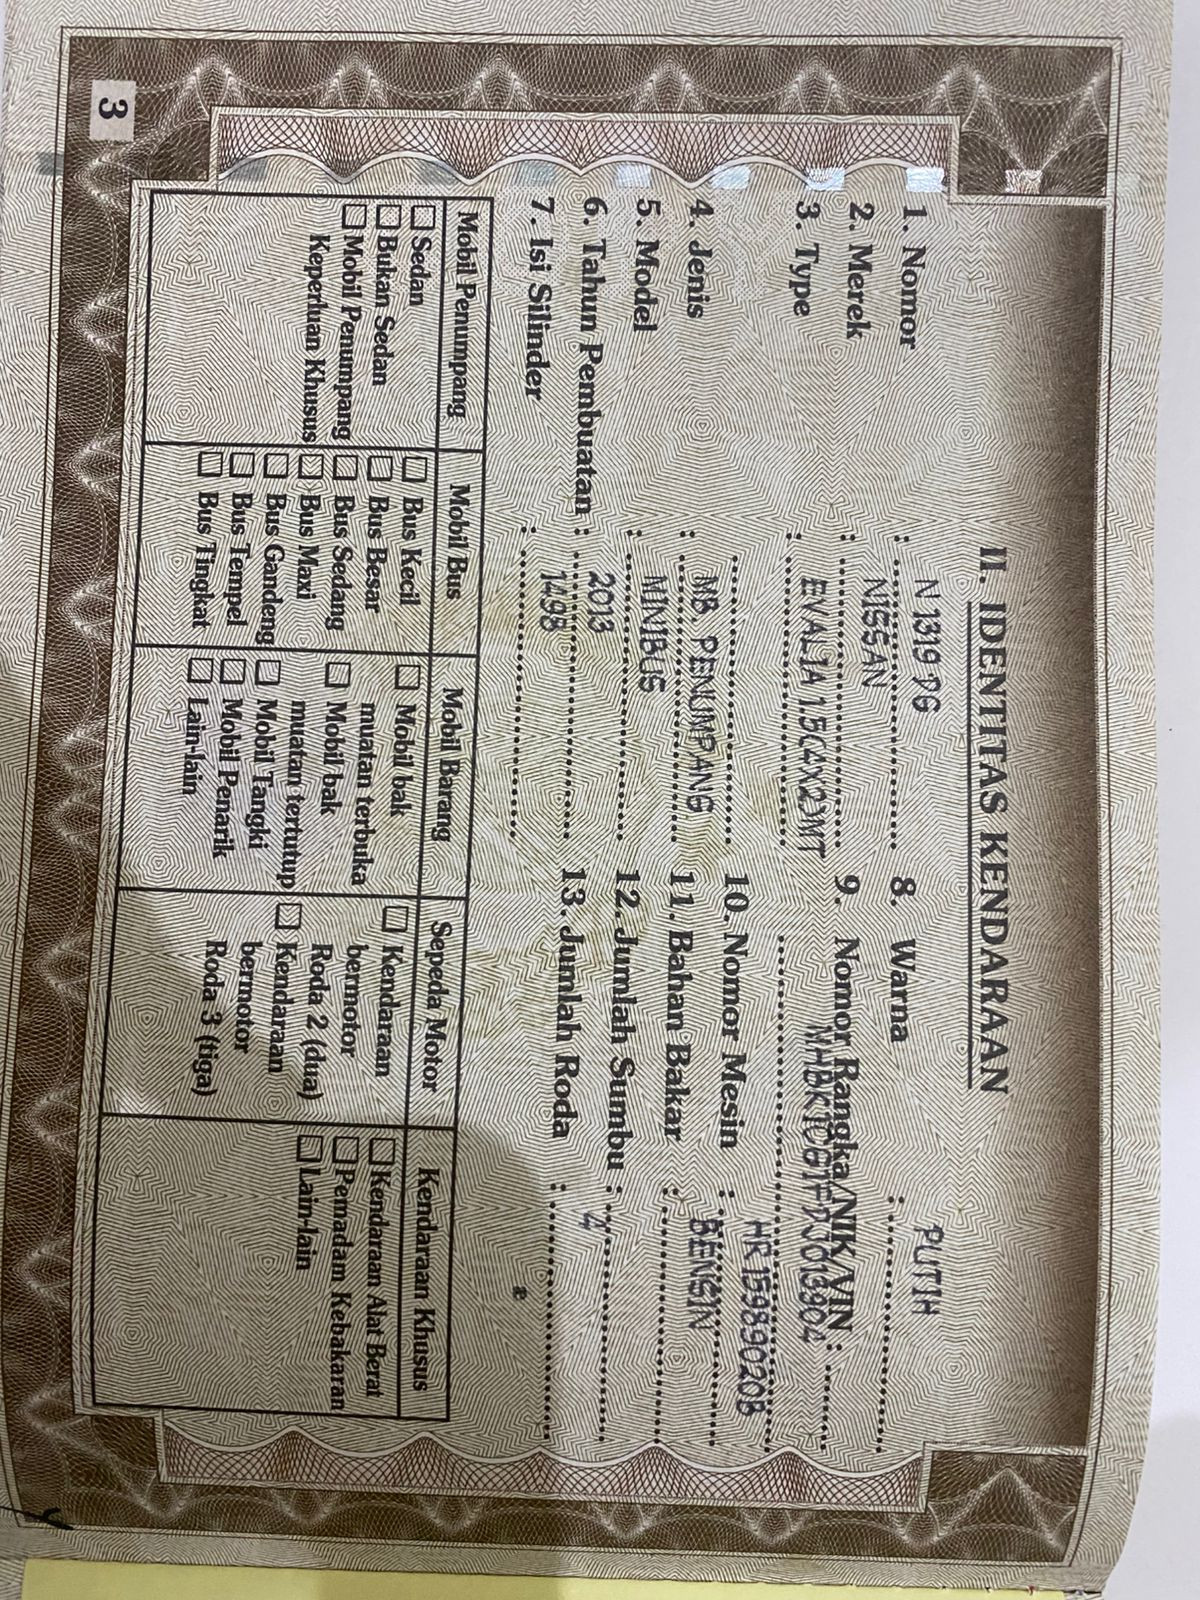 II. IDENTITAS KENDARAAN
1. Nomor : N 1319 DG
2. Merek : NISSAN
3. Type : EVALIA 1.5(4X2)MT
4. Jenis : MB. PENUMPANG
5. Model : MINIBUS
6. Tahun Pembuatan : 2013
7. Isi Silinder : 1498
8. Warna : PUTIH
9. Nomor Rangka/NIK/VIN :
10. Nomor Mesin : HR15989020B
11. Bahan Bakar : BENSIN
12. Jumlah Sumbu :
13. Jumlah Roda : 4
Mobil Penumpang
Sedan
Bukan Sedan
Mobil Penumpang
Keperluan Khusus
Mobil Bus
Bus Kecil
Bus Besar
Bus Sedang
Bus Maxi
Bus Gandeng
Bus Tempel
Bus Tingkat
Mobil Barang
Mobil bak
muatan terbuka
Mobil bak
muatan tertutup
Mobil Tangki
Mobil Penarik
Lain-lain
Sepeda Motor
Kendaraan
bermotor
Roda 2 (dua)
Kendaraan
bermotor
Roda 3 (tiga)
Kendaraan Khusus
Kendaraan Alat Berat
Pemadam Kebakaran
Lain-lain
3